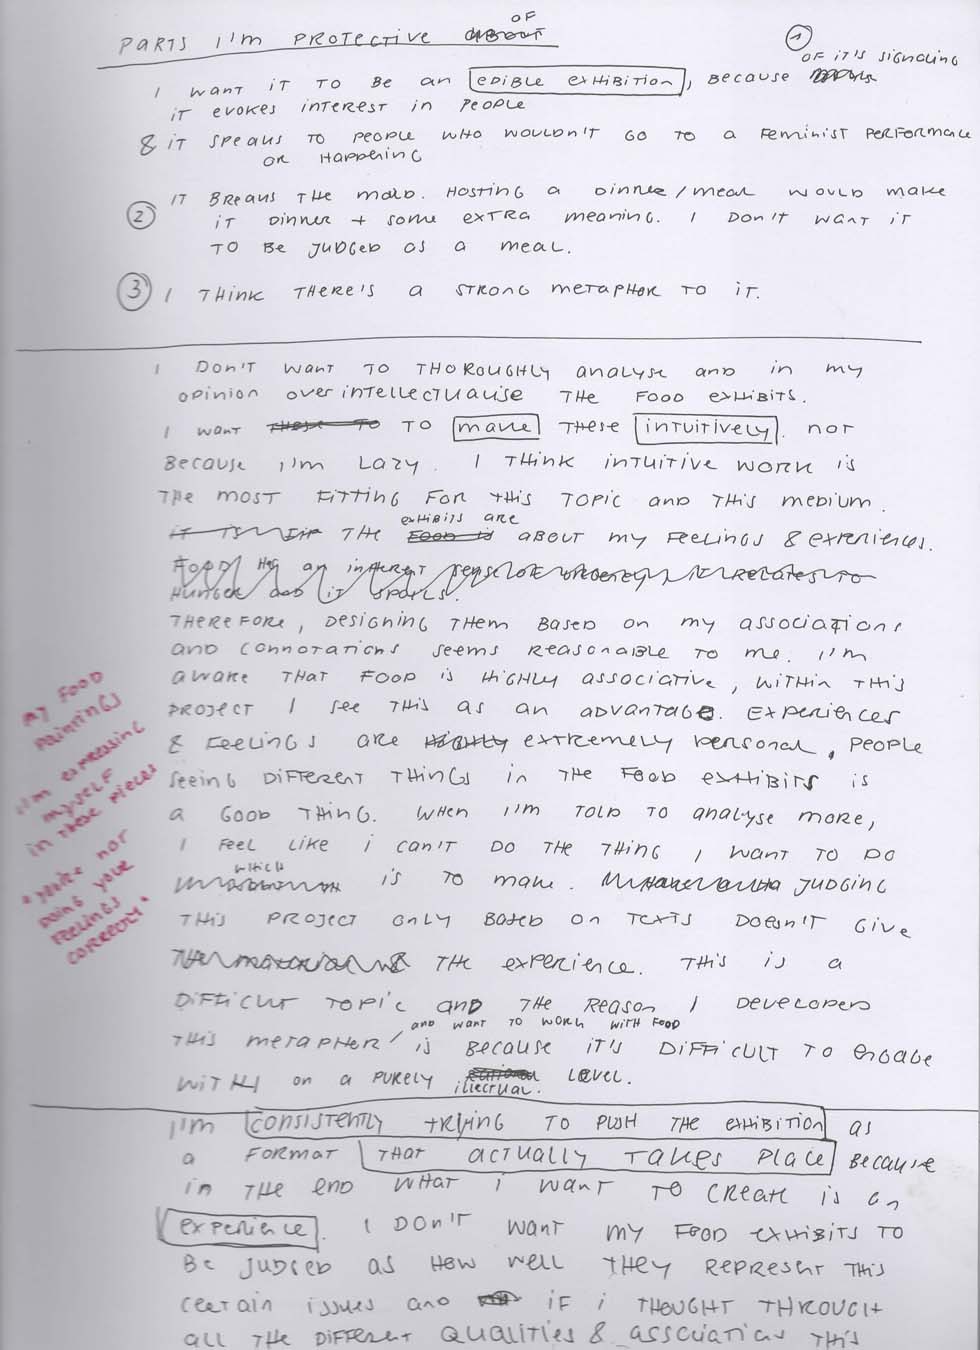 PARTS I'M PROTECTIVE ABOUT OF
①
I WANT IT TO BE AN EDIBLE EXHIBITION, BECAUSE OF IT'S SIGNALING
IT EVOKES INTEREST IN PEOPLE
& IT SPEAKS TO PEOPLE WHO WOULDN'T GO TO A FEMINIST PERFORMACE
OR HAPPENING
② IT BREAKS THE MOLD. HOSTING A DINNER/MEAL WOULD MAKE
IT DINNER + SOME EXTRA MEANING. I DON'T WANT IT
TO BE JUDGED AS A MEAL.
③ I THINK THERE'S A STRONG METAPHOR TO IT.
I DON'T WANT TO THOROUGHLY ANALYSE AND IN MY
OPINION OVERINTELLECTUALISE THE FOOD EXHIBITS.
I WANT THESE TO TO MAKE THESE INTUITIVELY. NOT
BECAUSE I'M LAZY. I THINK INTUITIVE WORK IS
THE MOST FITTING FOR THIS TOPIC AND THIS MEDIUM.
EXHIBITS ARE
IT IS THE FOOD IS ABOUT MY FEELINGS & EXPERIENCES.
FOOD HAS AN INHERENT SENSE OF URGENCY, IT RELATES TO
HUNGER AND IT SPOILS.
THEREFORE, DESIGNING THEM BASED ON MY ASSOCIATIONS
AND CONNOTATIONS SEEMS REASONABLE TO ME. I'M
AWARE THAT FOOD IS HIGHLY ASSOCIATIVE, WITHIN THIS
PROJECT I SEE THIS AS AN ADVANTAGE. EXPERIENCES
& FEELINGS ARE HIGHLY EXTREMELY PERSONAL, PEOPLE
SEEING DIFFERENT THINGS IN THE FOOD EXHIBITS IS
A GOOD THING. WHEN I'M TOLD TO ANALYSE MORE,
I FEEL LIKE I CAN'T DO THE THING I WANT TO DO
WHICH
IS TO MAKE. JUDGING
THIS PROJECT ONLY BASED ON TEXTS DOESN'T GIVE
THE MATERIAL & THE EXPERIENCE. THIS IS A
DIFFICULT TOPIC AND THE REASON I DEVELOPED
AND WANT TO WORK WITH FOOD
THIS METAPHER IS BECAUSE IT'S DIFFICULT TO ENGAGE
WITH ON A PURELY RATIONAL LEVEL.
ILLECTUAL.
MY FOOD
PAINTINGS
I'M EXPRESSING
MYSELF
IN THESE PIECES
"YOU'RE NOT
DOING YOUR
FEELINGS
CORRECTLY"
I'M CONSISTENTLY TRYING TO PUSH THE EXHIBITION AS
A FORMAT THAT ACTUALLY TAKES PLACE BECAUSE
IN THE END WHAT I WANT TO CREATE IS AN
EXPERIENCE. I DON'T WANT MY FOOD EXHIBITS TO
BE JUDGED AS HOW WELL THEY REPRESENT THIS
CERTAIN ISSUES AND IF I THOUGHT THROUGH
ALL THE DIFFERENT QUALITIES & ASSCIATIONS THIS